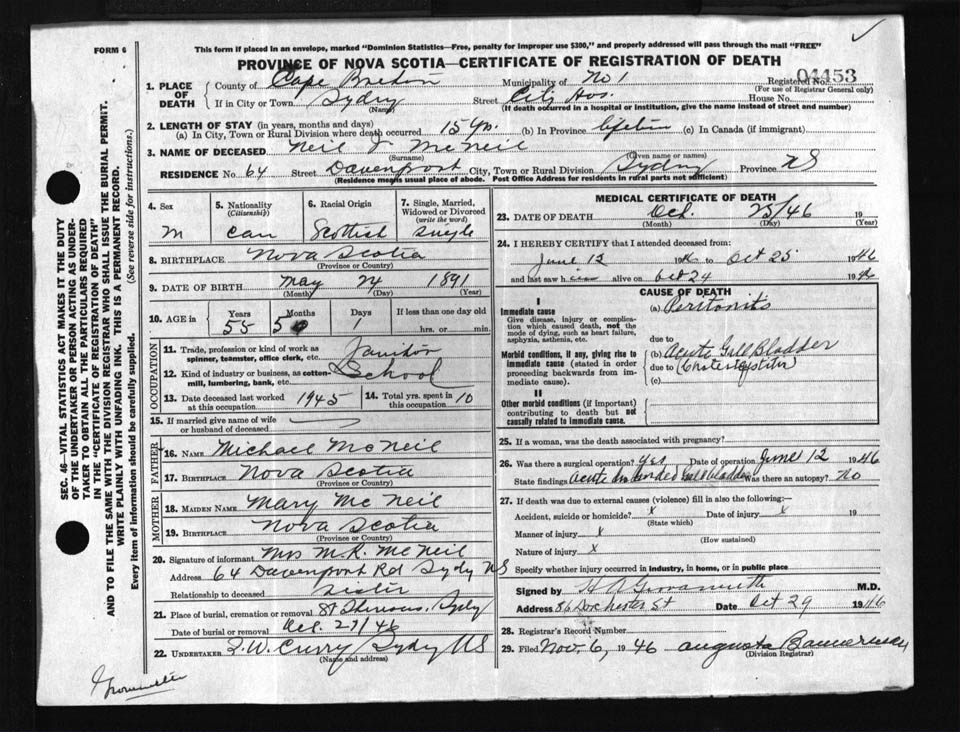 FORM 6
This form if placed in an envelope, marked "Dominion Statistics—Free, penalty for improper use $300," and properly addressed will pass through the mail "FREE"
PROVINCE OF NOVA SCOTIA—CERTIFICATE OF REGISTRATION OF DEATH
1. PLACE OF DEATH County of Cape Breton Municipality of No 1 Registered No. 04453
(For use of Registrar General only)
If in City or Town Sydney Street City Hos. House No.
(Name) (If death occurred in a hospital or institution, give the name instead of street and number)
2. LENGTH OF STAY (in years, months and days)
(a) In City, Town or Rural Division where death occurred 15 yrs. (b) In Province lifetime (c) In Canada (if immigrant)
3. NAME OF DECEASED Neil J McNeil
(Surname) (Given name or names)
RESIDENCE No. 64 Street Davenport City, Town or Rural Division Sydney Province NS
(Residence means usual place of abode. Post Office Address for residents in rural parts not sufficient)
4. Sex M
5. Nationality (Citizenship) Can
6. Racial Origin Scottish
7. Single, Married, Widowed or Divorced (write the word) Single
8. BIRTHPLACE Nova Scotia
(Province or Country)
9. DATE OF BIRTH May 24 1891
(Month) (Day) (Year)
10. AGE in Years Months Days If less than one day old
55 5 1 hrs. or min.
OCCUPATION
11. Trade, profession or kind of work as spinner, teamster, office clerk, etc. Janitor
12. Kind of industry or business, as cotton-mill, lumbering, bank, etc. School
13. Date deceased last worked at this occupation 1945
14. Total yrs. spent in this occupation 10
15. If married give name of wife or husband of deceased
FATHER
16. NAME Michael McNeil
17. BIRTHPLACE Nova Scotia
(Province or Country)
MOTHER
18. MAIDEN NAME Mary McNeil
19. BIRTHPLACE Nova Scotia
(Province or Country)
20. Signature of informant Mrs M.R. McNeil
Address 64 Davenport Rd Sydney NS
Relationship to deceased sister
21. Place of burial, cremation or removal Sydney
Date of burial or removal Oct. 27/46
22. UNDERTAKER Curry Sydney NS
(Name and address)
MEDICAL CERTIFICATE OF DEATH
23. DATE OF DEATH Oct. 25/46 19
(Month) (Day) (Year)
24. I HEREBY CERTIFY that I attended deceased from:
June 12 1946 to Oct 25 1946
and last saw h alive on Oct 24 1946
CAUSE OF DEATH
I
Immediate cause
Give disease, injury or complication which caused death, not the mode of dying, such as heart failure, asphyxia, asthenia, etc.
(a) Peritonitis
due to
Morbid conditions, if any, giving rise to immediate cause (stated in order proceeding backwards from immediate cause).
(b) Acute Gall Bladder
due to
(c)
II
Other morbid conditions (if important) contributing to death but not causally related to immediate cause.
25. If a woman, was the death associated with pregnancy?
26. Was there a surgical operation? Yes Date of operation June 12 1946
State findings Acute Gall Bladder Was there an autopsy? No
27. If death was due to external causes (violence) fill in also the following:—
Accident, suicide or homicide? x Date of injury x 19
(State which)
Manner of injury x
(How sustained)
Nature of injury x
Specify whether injury occurred in industry, in home, or in public place
Signed by M.D.
Address 86 Dorchester St Date Oct 29 1946
28. Registrar's Record Number
29. Filed Nov. 6, 1946 Augusta
(Division Registrar)
SEC. 46—VITAL STATISTICS ACT MAKES IT THE DUTY
OF THE UNDERTAKER OR PERSON ACTING AS UNDER-
TAKER TO OBTAIN ALL THE PARTICULARS REQUIRED
IN THE "CERTIFICATE OF REGISTRATION OF DEATH"
AND TO FILE THE SAME WITH THE DIVISION REGISTRAR WHO SHALL ISSUE THE BURIAL PERMIT.
WRITE PLAINLY WITH UNFADING INK. THIS IS A PERMANENT RECORD.
Every item of information should be carefully supplied. (See reverse side for instructions.)